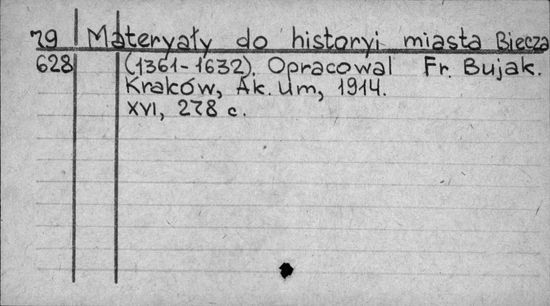 79 Materyały do historyi miasta Biecza
628 (1361-1632). Opracował Fr. Bujak.
Kraków, Ak. Um, 1914.
XVI, 278 c.